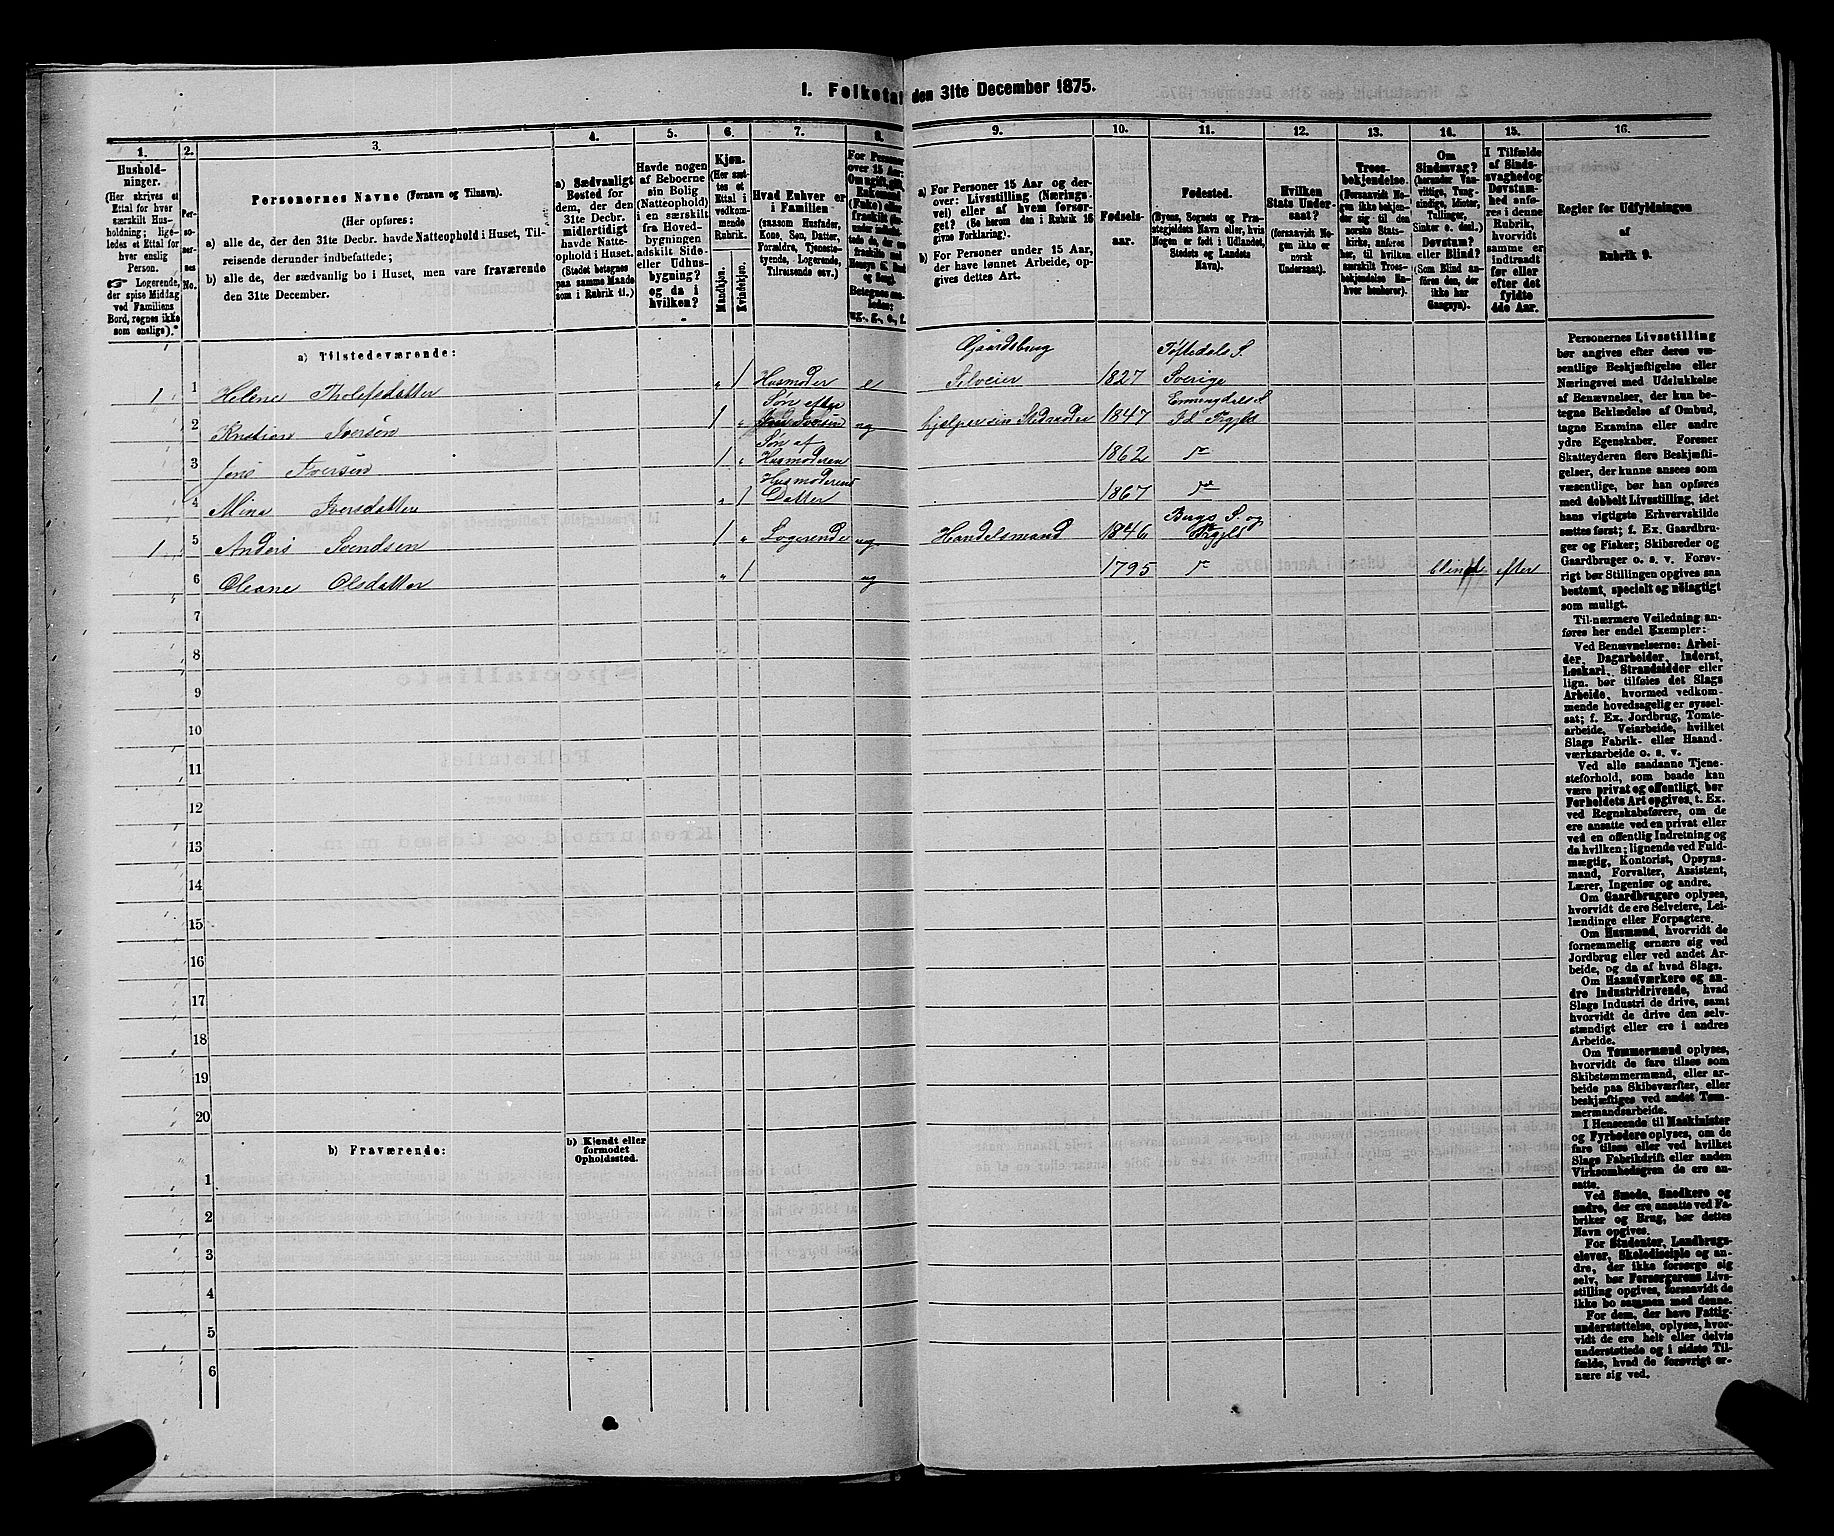 1. Folketal den 31te December 1875.
1.
2.
3.
4.
5.
6.
7.
8.
9.
10.
11.
12.
13.
14.
15.
16.
Hushold-
ninger.
(Her skrives et
Ettal for hver
særskilt Hus-
holdning; lige-
ledes et Ettal for
hver enslig
Person.
☞ Logerende,
der spise Middag
ved Familiens
Bord, regnes ikke
som enslige).
Per-
so-
ner-
nes
No.
Personernes Navne (Fornavn og Tilnavn).
(Her opføres:
a) alle de, der den 31te Decbr. havde Natteophold i Huset, Til-
reisende derunder indbefattede;
b) alle de, der sædvanlig bo i Huset, men vare fraværende
den 31te December.
a) Sædvanligt
Bosted for
dem, der den
31te Decbr.
midlertidigt
havde Natte-
ophold i Huset.
(Stedet betegnes
paa samme Maade
som i Rubrik 11.)
Havde nogen
af Beboerne
sin Bolig
(Natteophold)
i en særskilt
fra Hoved-
bygningen
adskilt Side-
eller Udhus-
bygning?
og da i
hvilken?
Kjøn.
(Her sæt-
tes et
Ettal i
vedkom-
mende
Rubrik.
Mandkjøn.
Kvindekjøn.
Hvad Enhver er
i Familien
(saasom Husfader,
Kone, Søn, Datter,
Forældre, Tjeneste-
tyende, Logerende,
Tilreisende osv.)
For Personer
over 15 Aar:
Om ugift, gift,
ug., g., e., f.
a) For Personer 15 Aar og der-
over: Livsstilling (Nærings-
vei) eller af hvem forsør-
get? (Se herom den i Rubrik 16
givne Forklaring).
b) For Personer under 15 Aar,
der have lønnet Arbeide, op-
gives dettes Art.
Fødsels-
aar.
Fødested.
(Byens, Sognets og Præ-
stegjeldets Navn eller, hvis
Nogen er født i Udlandet,
Stedets og Landets
Navn).
Hvilken
Stats Under-
saat?
(forsaavidt No-
gen ikke er
norsk
Undersaat).
Troes-
bekjendelse.
(Forsaavidt No-
gen ikke bekjen-
der sig til den
norske Stats-
kirke, anføres
her, til hvilken
særskilt Troes-
bekjendelse En-
hver henhører).
Om
Sindssvag?
(herunder Van-
vittige, Tung-
sindige, Idioter,
Tullinger,
Sinker o. desl.)
Døvstum?
eller Blind?
(Som Blind an-
føres den, der
ikke har
Gangsyn).
I Tilfælde
af Sinds-
svaghed og
Døvstum-
hed anfø-
res i denne
Rubrik,
hvorvidt
samme er
indtraadt
før eller
efter det
fyldte
4de Aar.
Regler for Udfyldningen
af
Rubrik 9.
a) Tilstedeværende:
Gaardsbrug
Töftedals S.
1 1 Helene Tholefsdatter „ 1 Husmoder e Selveier 1827 Sverige
Søn efter
Enningdals S.
2 Kristian Iversen 1 „ ug hjælper sin Stedmoder 1847 Id Prgjeld
Søn af
3 Jens Iversen 1 „ Husmoderen 1862 do
Husmoderens
4 Mina Iversdatter „ 1 Datter 1867 do
Bergs S. og
1 5 Anders Svendsen 1 „ Logerende ug Handelsmand 1846 Prgjeld
6 Oleane Olsdatter „ 1 ug 1795 do blind efter
7
8
9
10
11
12
13
14
15
16
17
18
19
20
b) Fraværende:
b) Kjendt eller
formodet
Opholdssted.
1
2
3
4
5
6
Personernes Livsstilling
bør angives efter deres væ-
sentlige Beskjæftigelse eller
Næringsvei med Udelukkelse
af Benævnelser, der kun be-
tegne Beklædelse af Ombud,
tagne Examina eller andre
ydre Egenskaber. Forener
Skatteyderen flere Beskjæfti-
gelser, der kunne ansees som
væsentlige, bør han opføres
med dobbelt Livsstilling, idet
hans vigtigste Erhvervskilde
sættes først; f. Ex. Gaardbru-
ger og Fisker; Skibsreder og
Gaardbruger o. s. v. Forøv-
rigt bør Stillingen opgives saa
bestemt, specielt og nøiagtigt
som muligt.
Til nærmere Veiledning an-
føres her endel Exempler:
Ved Benævnelserne: Arbei-
der, Dagarbeider, Inderst,
Løskarl, Strandsidder eller
lign. bør tilføies det Slags
Arbeide, hvormed vedkom-
mende hovedsagelig er syssel-
sat; f. Ex. Jordbrug, Tomte-
arbeide, Veiarbeide, hvilket
Slags Fabrik- eller Haand-
værksarbeide o. s. v.
Ved alle saadanne Tjene-
steforhold, som baade kan
være privat og offentligt, bør
Forholdets Art opgives, t. Ex.
ved Regnskabsførere, om de
ere ansatte ved en privat eller
ved en offentlig Indretning og
da hvilken; lignende ved Fuld-
mægtig, Kontorist, Opsyns-
mand, Forvalter, Assistent,
Lærer, Ingeniør og andre.
Om Gaardbrugere oplyses,
hvorvidt de ere Selveiere, Lei-
lændinge eller Forpagtere.
Om Husmænd, hvorvidt de
fornemmelig ernære sig ved
Jordbrug eller ved andet Ar-
beide, og da af hvad Slags.
Om Haandværkere og an-
dre Industridrivende, hvad
Slags Industri de drive, samt
hvorvidt de drive den selv-
stændigt eller ere i andres
Arbeide.
Om Tømmermænd oplyses,
hvorvidt de fare tilsøs som
Skibstømmermænd, eller ar-
beide paa Skibsværfter, eller
beskjæftiges ved andet Tøm-
mermandsarbeide.
I Henseende til Maskinister
og Fyrbødere oplyses, om de
fare tilsøs eller ved hvilket
Slags Fabrikdrift eller anden
Virksomhedsgren de ere an-
satte.
Ved Smede, Snedkere og
andre, der ere ansatte ved Fa-
briker og Brug, bør dettes
Navn opgives.
For Studenter, Landbrugs-
elever, Skoledisciple og an-
dre, der ikke forsørge sig
selv, bør Forsørgerens Livs-
stilling opgives, forsaavidt de
ikke bo sammen med denne.
For dem, der have Fattig-
understøttelse, oplyses, hvor-
vidt de ere helt eller delvis
understøttede og i sidste Til-
fælde, hvad de forøvrigt er-
nære sig ved.